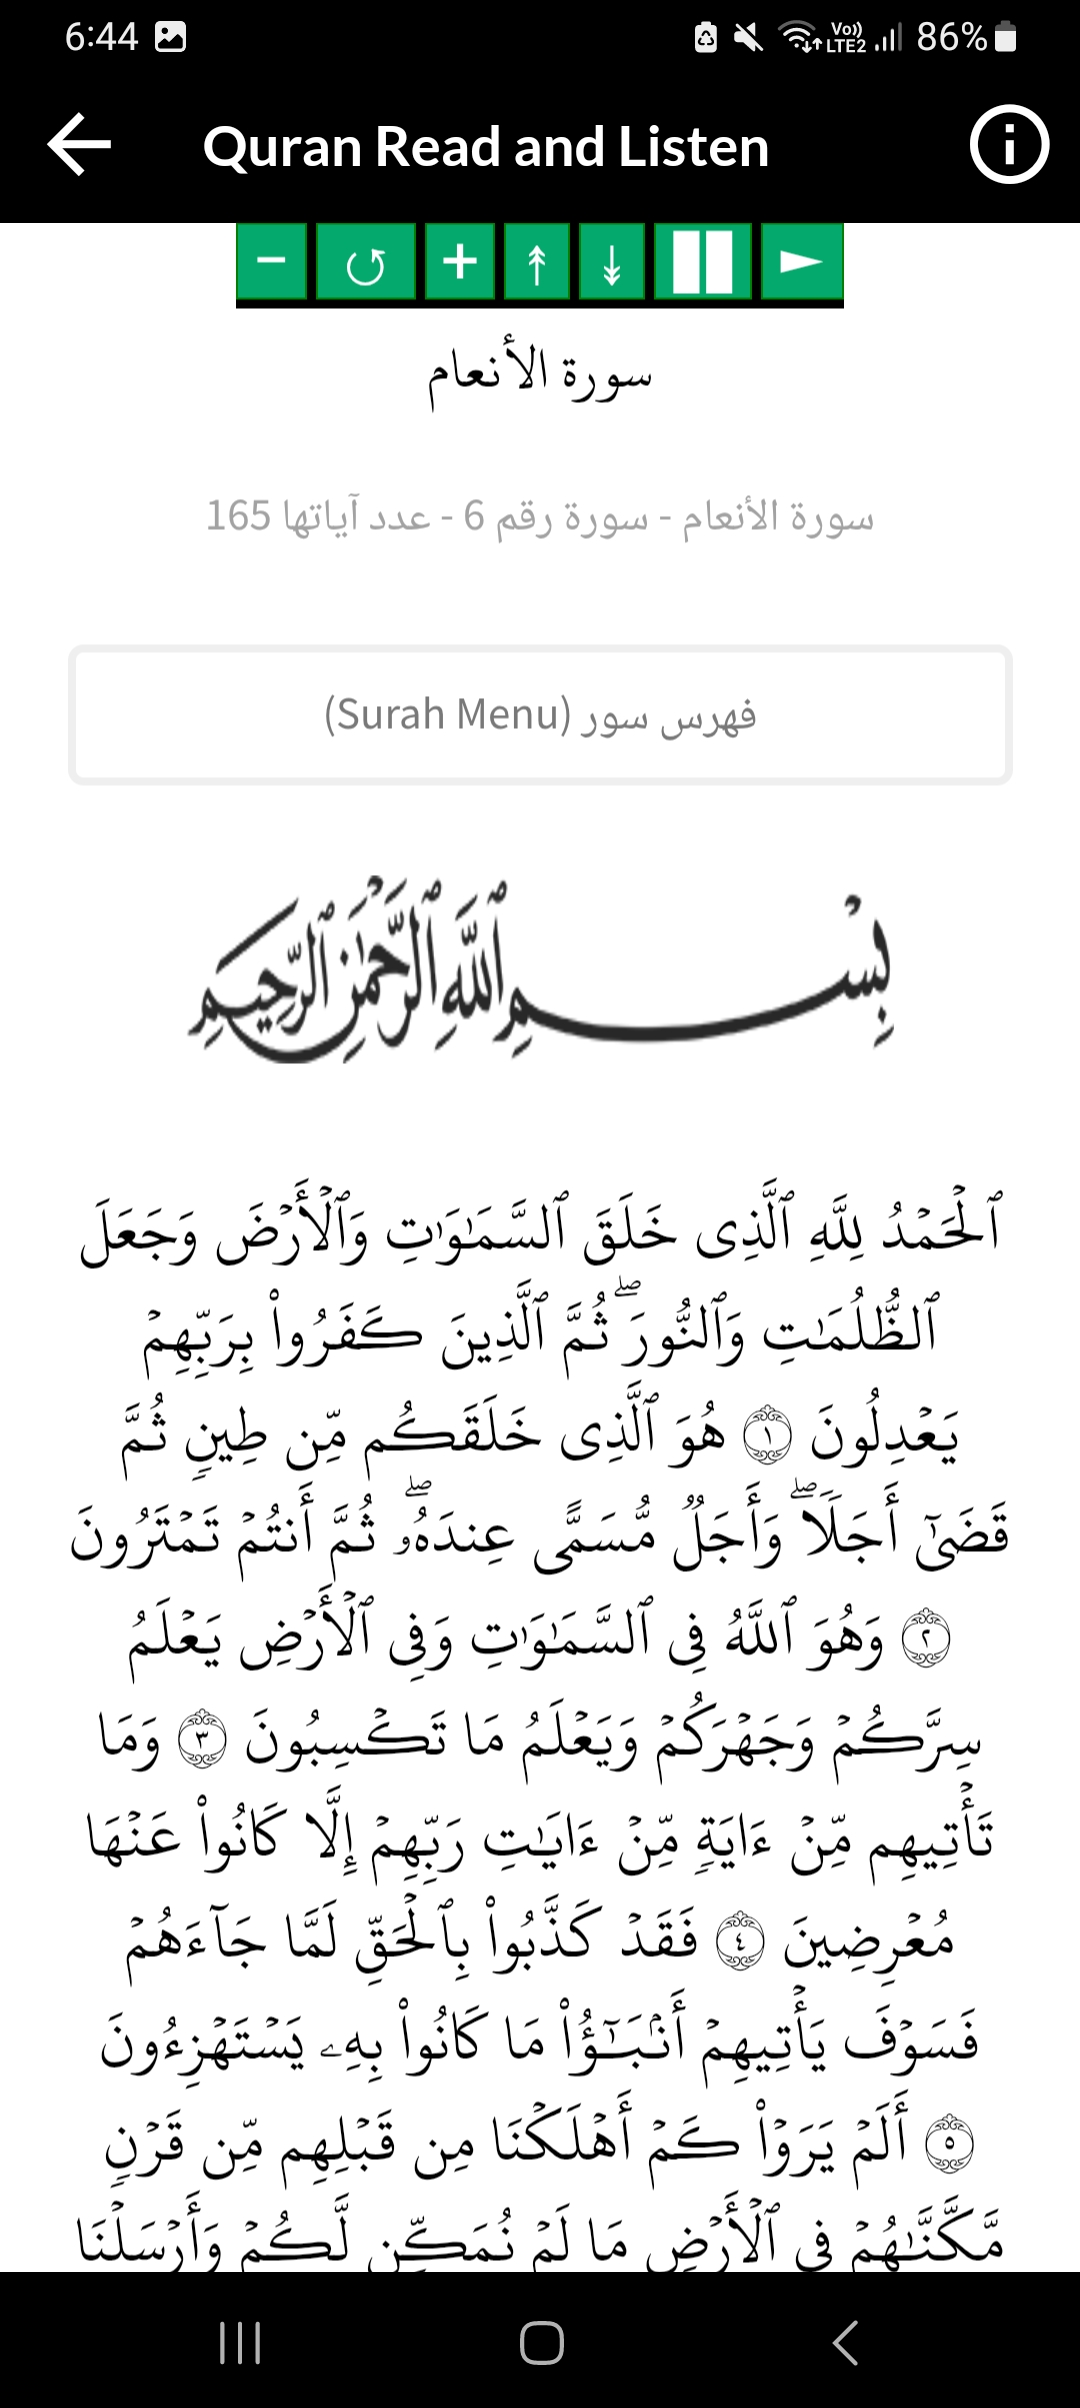 6:44
Vo))
LTE2
86%
Quran Read and Listen
سورة الأنعام
سورة الأنعام - سورة رقم 6 - عدد آياتها 165
فهرس سور (Surah Menu)
بِسْمِ ٱللَّهِ ٱلرَّحْمَٰنِ ٱلرَّحِيمِ
ٱلْحَمْدُ لِلَّهِ ٱلَّذِى خَلَقَ ٱلسَّمَٰوَٰتِ وَٱلْأَرْضَ وَجَعَلَ
ٱلظُّلُمَٰتِ وَٱلنُّورَ ۖ ثُمَّ ٱلَّذِينَ كَفَرُوا۟ بِرَبِّهِمْ
يَعْدِلُونَ ١ هُوَ ٱلَّذِى خَلَقَكُم مِّن طِينٍ ثُمَّ
قَضَىٰٓ أَجَلًا ۖ وَأَجَلٌ مُّسَمًّى عِندَهُۥ ۖ ثُمَّ أَنتُمْ تَمْتَرُونَ
٢ وَهُوَ ٱللَّهُ فِى ٱلسَّمَٰوَٰتِ وَفِى ٱلْأَرْضِ يَعْلَمُ
سِرَّكُمْ وَجَهْرَكُمْ وَيَعْلَمُ مَا تَكْسِبُونَ ٣ وَمَا
تَأْتِيهِم مِّنْ ءَايَةٍ مِّنْ ءَايَٰتِ رَبِّهِمْ إِلَّا كَانُوا۟ عَنْهَا
مُعْرِضِينَ ٤ فَقَدْ كَذَّبُوا۟ بِٱلْحَقِّ لَمَّا جَآءَهُمْ
فَسَوْفَ يَأْتِيهِمْ أَنۢبَٰٓؤُا۟ مَا كَانُوا۟ بِهِۦ يَسْتَهْزِءُونَ
٥ أَلَمْ يَرَوْا۟ كَمْ أَهْلَكْنَا مِن قَبْلِهِم مِّن قَرْنٍ
مَّكَّنَّٰهُمْ فِى ٱلْأَرْضِ مَا لَمْ نُمَكِّن لَّكُمْ وَأَرْسَلْنَا